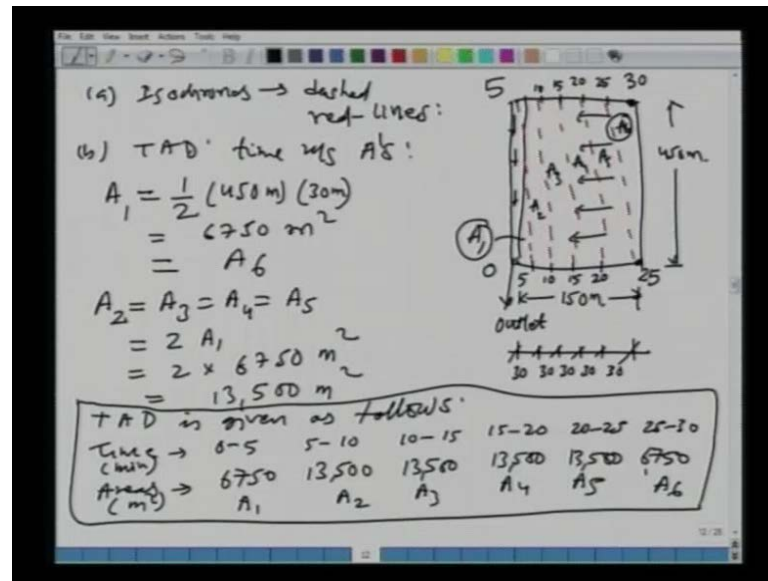 File Edit View Insert Actions Tools Help
(a) Isochrones → dashed
red-lines:
(b) TAD: time vs A's:
A1 = 1/2 (450m) (30m)
= 6750 m2
= A6
A2 = A3 = A4 = A5
= 2 A1
= 2 × 6750 m2
= 13,500 m2
5 10 15 20 25 30
A6
A5
A4
A3
A2
A1
450m
0 5 10 15 20 25
150m
outlet
30 30 30 30 30
TAD is given as follows:
Time → 0-5 5-10 10-15 15-20 20-25 25-30
(min)
Areas → 6750 13,500 13,500 13,500 13,500 6750
(m2) A1 A2 A3 A4 A5 A6
12